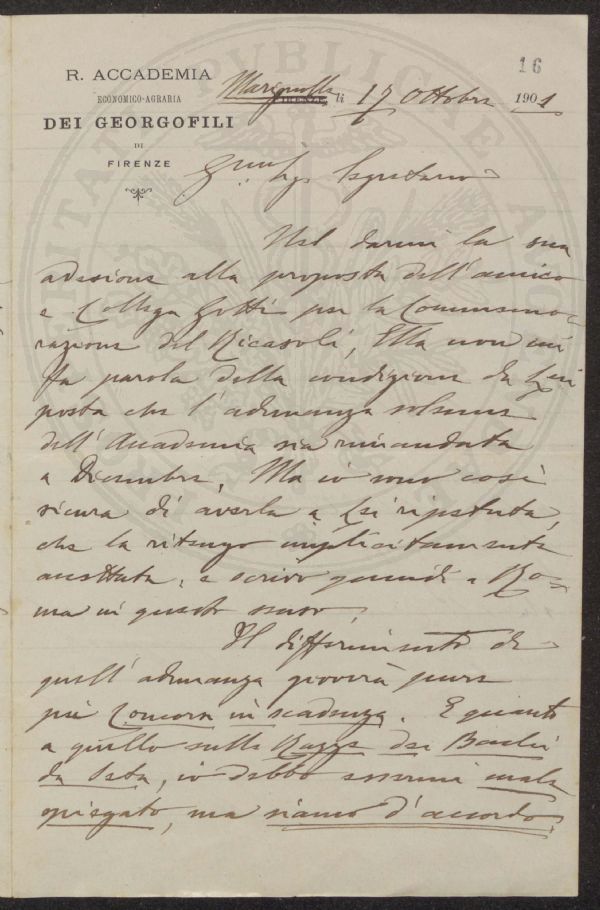 16
R. ACCADEMIA
ECONOMICO-AGRARIA
DEI GEORGOFILI
DI
FIRENZE
Marignolle FIRENZE, li 17 Ottobre 1901
Segretario
Nel darmi la sua
adesione alla proposta dell'amico
e Collega Gotti per la Commemo-
razione del Ricasoli, Ella non mi
fa parola della condizione da Lui
posta che l'adunanza solenne
dell'Accademia sia rimandata
a Dicembre. Ma io sono così
sicura di averla a Lei ripetuta,
che la ritengo implicitamente
accettata, e scrivo quindi a Ro-
ma in questo senso.
Il differimento di
quell'adunanza gioverà pure
pei Concorsi in scadenza. E quanto
a quello sulle Razze dei Bachi
da Seta, io debbo essermi male
spiegato, ma siamo d'accordo.